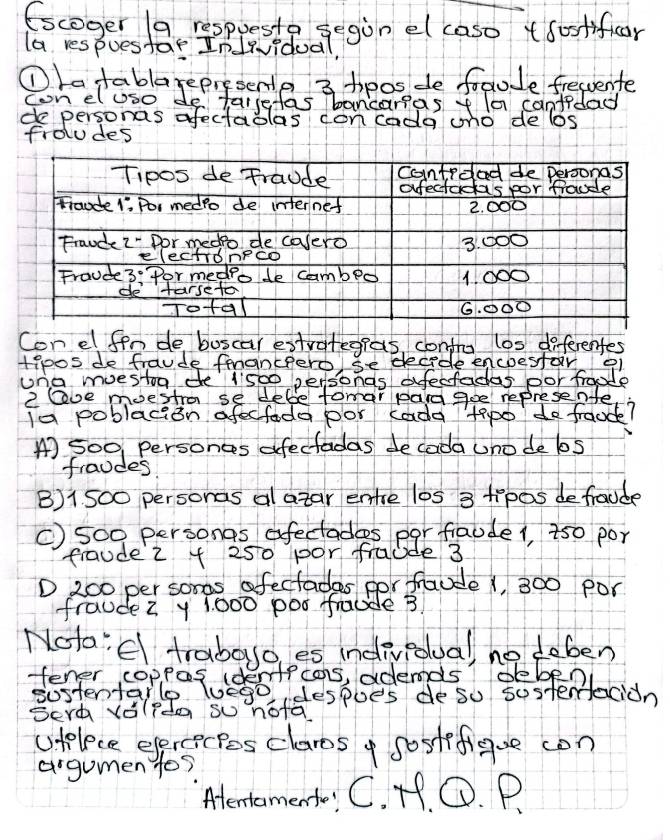 Escoger la respuesta según el caso y Justificar
la respuesta: Individual.
① La tabla representa 3 tipos de fraude frecuente
con el uso de tarjetas bancarias y la cantidad
de personas afectadas con cada uno de los
fraudes
Tipos de Fraude Cantidad de Personas
afectadas por fraude
Fraude 1: Por medio de internet 2.000
Fraude 2- Por medio de cajero
electrónico 3.000
Fraude 3: Por medio de cambio
de tarjeta 1.000
Total 6.000
Con el fin de buscar estrategias contra los diferentes
tipos de fraude financiero, se decide encuestar a
una muestra de 1'500 personas afectadas por fraude
¿ Que muestra se debe tomar para que represente,
la población afectada por cada tipo de fraude?
A) 500 personas afectadas de cada uno de los
fraudes.
B) 1.500 personas al azar entre los 3 tipos de fraude
C) 500 personas afectadas por fraude 1, 750 por
fraude 2 y 250 por fraude 3
D 200 personas afectadas por fraude 1, 300 por
fraude 2 y 1.000 por fraude 3.
Nota: El trabajo es individual, no deben
tener copias identicas, además deben
sustentarlo luego, despues de su sustentación
Será válida su nota.
Utilice ejercicios claros y justifique con
argumentos
Atentamente: C.M.Q.P.